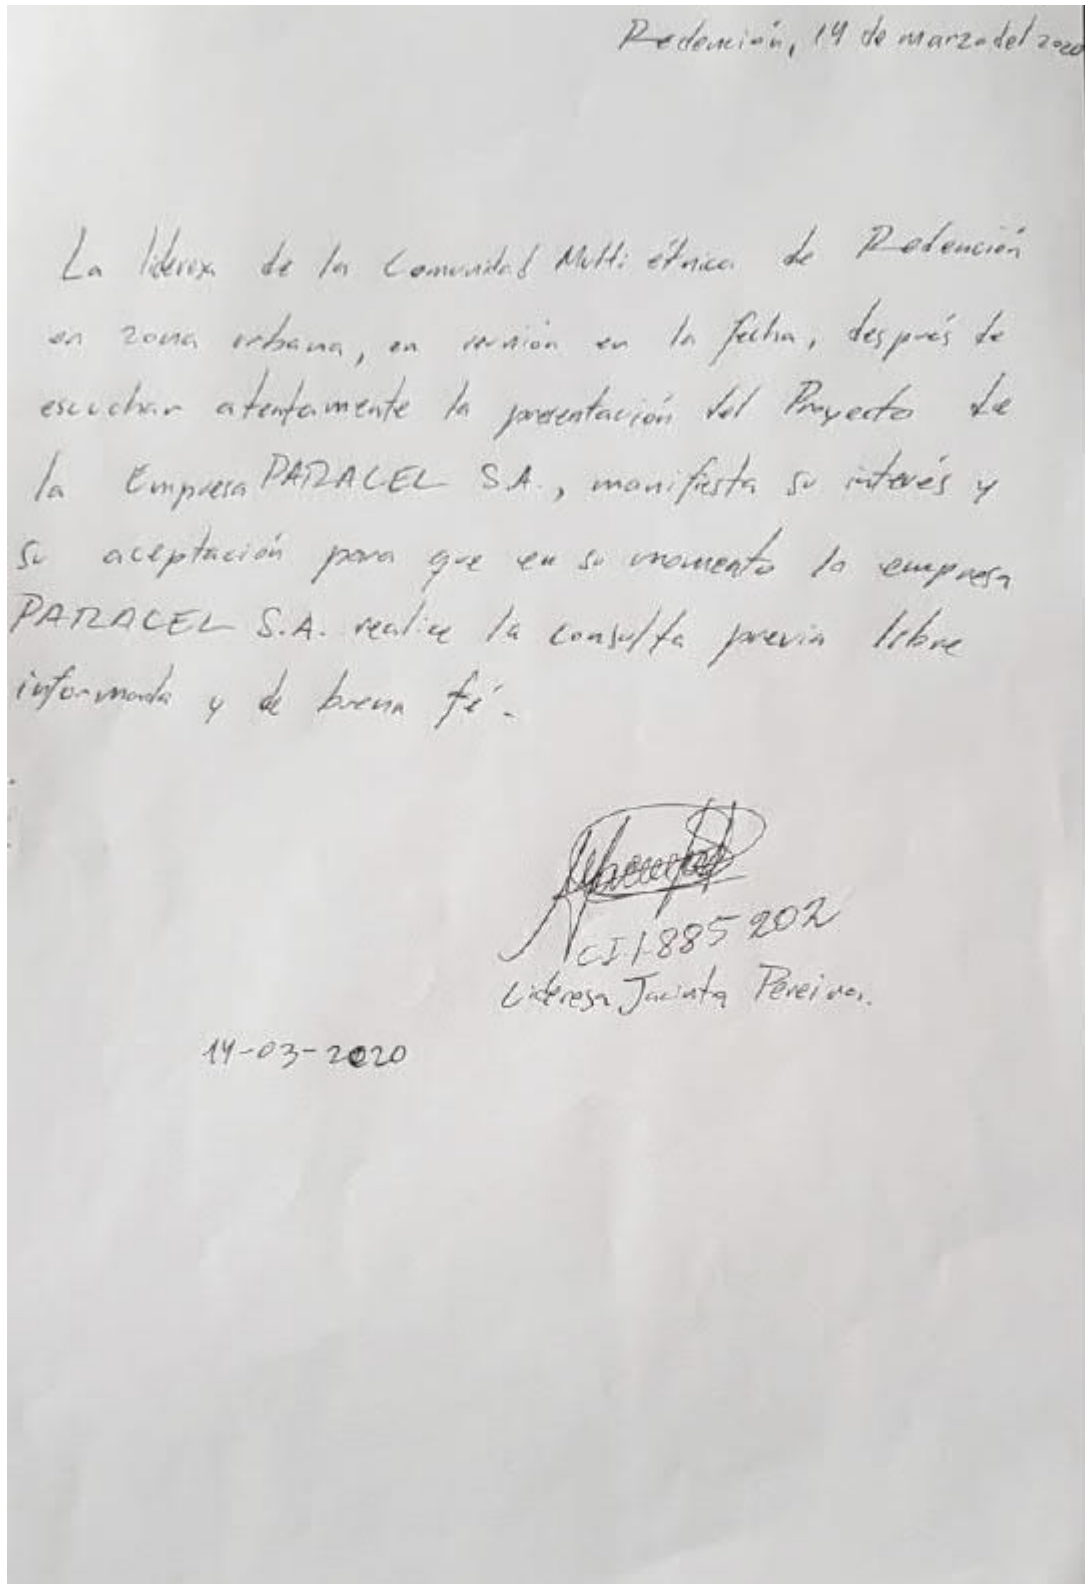 Redención, 14 de marzo del 2020
La lideresa de la Comunidad Multi étnica de Redención
en zona urbana, en reunión en la fecha, después de
escuchar atentamente la presentación del Proyecto de
la Empresa PARACEL S.A., manifiesta su interés y
su aceptación para que en su momento la empresa
PARACEL S.A. realice la consulta previa libre
informada y de buena fé.
CI 1.885 202
Lideresa Jacinta Pereira.
14-03-2020